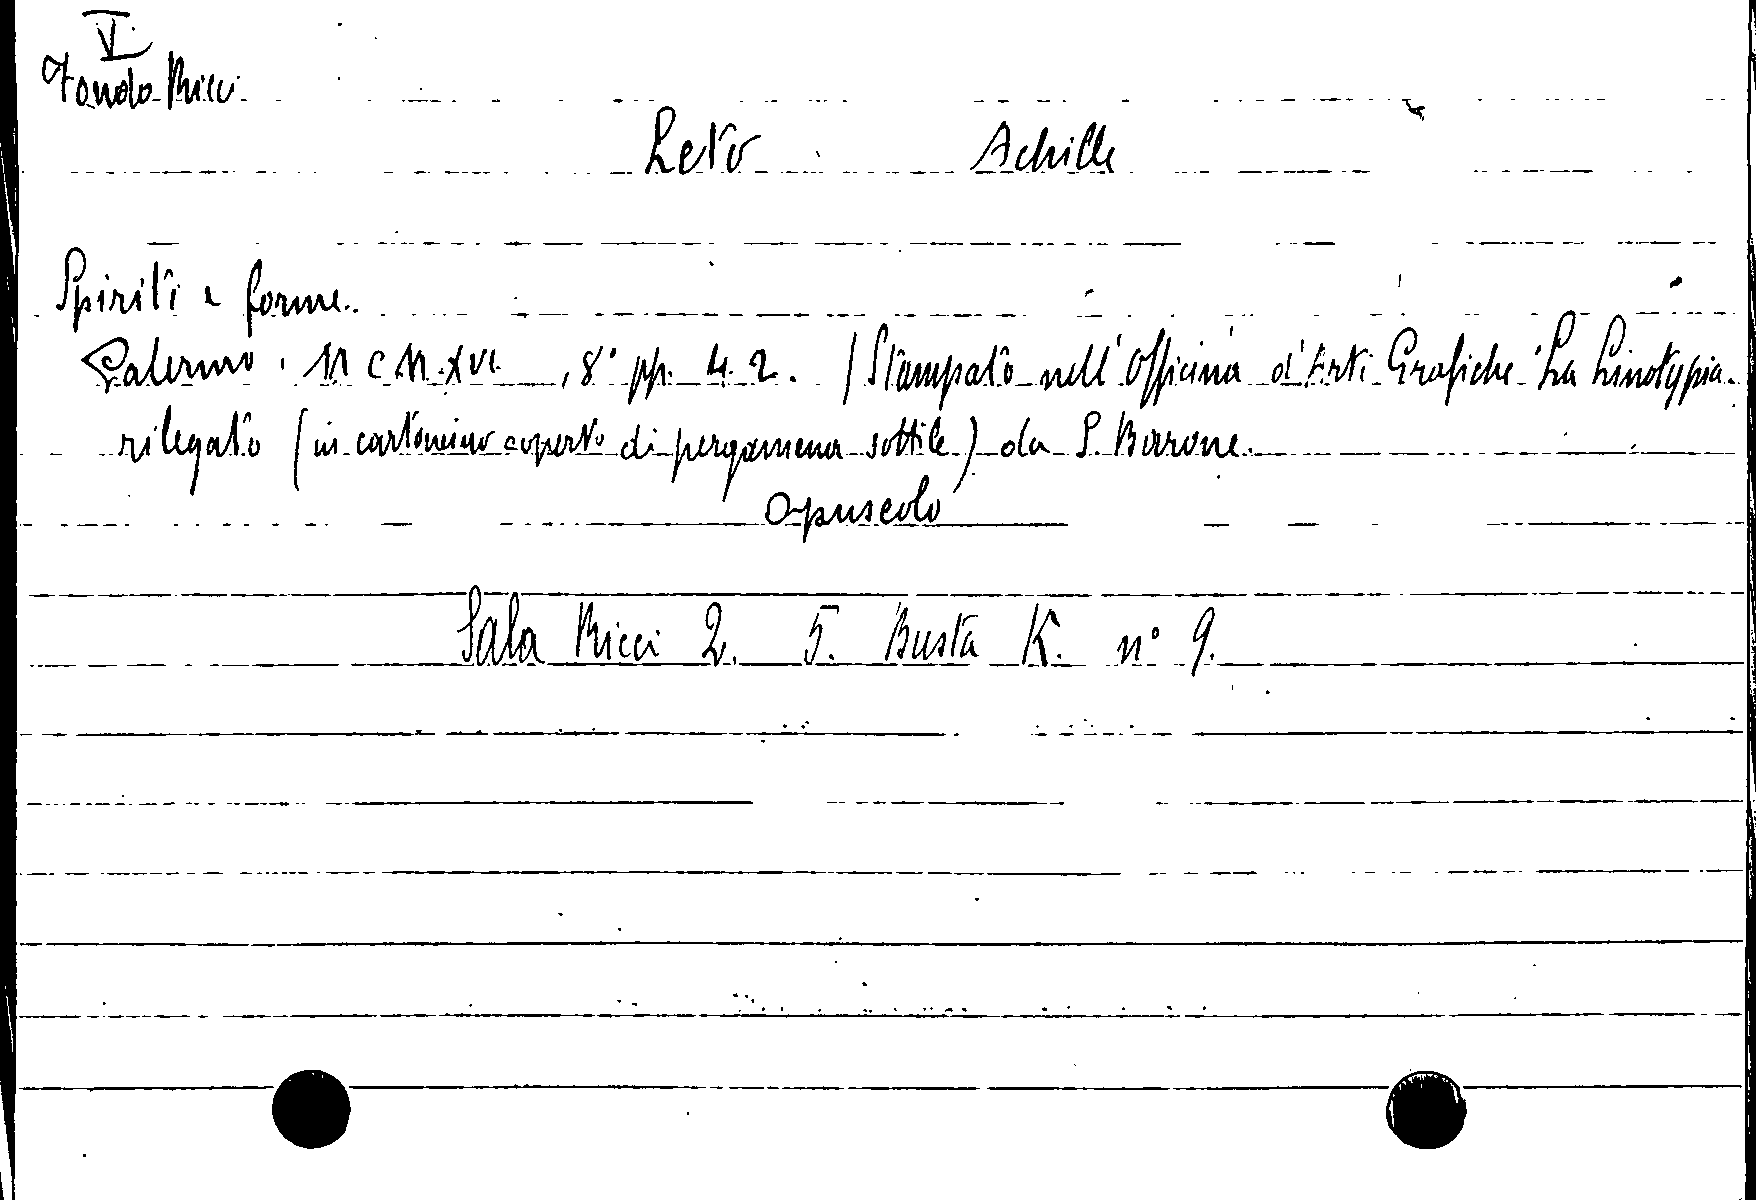 V
Fondo Ricci
Leto Achille
Spiriti e forme.
Palermo, MCMXVI. , 8° pp. 42. / Stampato nell'Officina d'Arti Grafiche "La Linotypia.
rilegato (in cartoncino coperto di pergamena sottile) da S. Barone.
Opuscolo
Sala Ricci 2. 5. Busta K. n° 9.